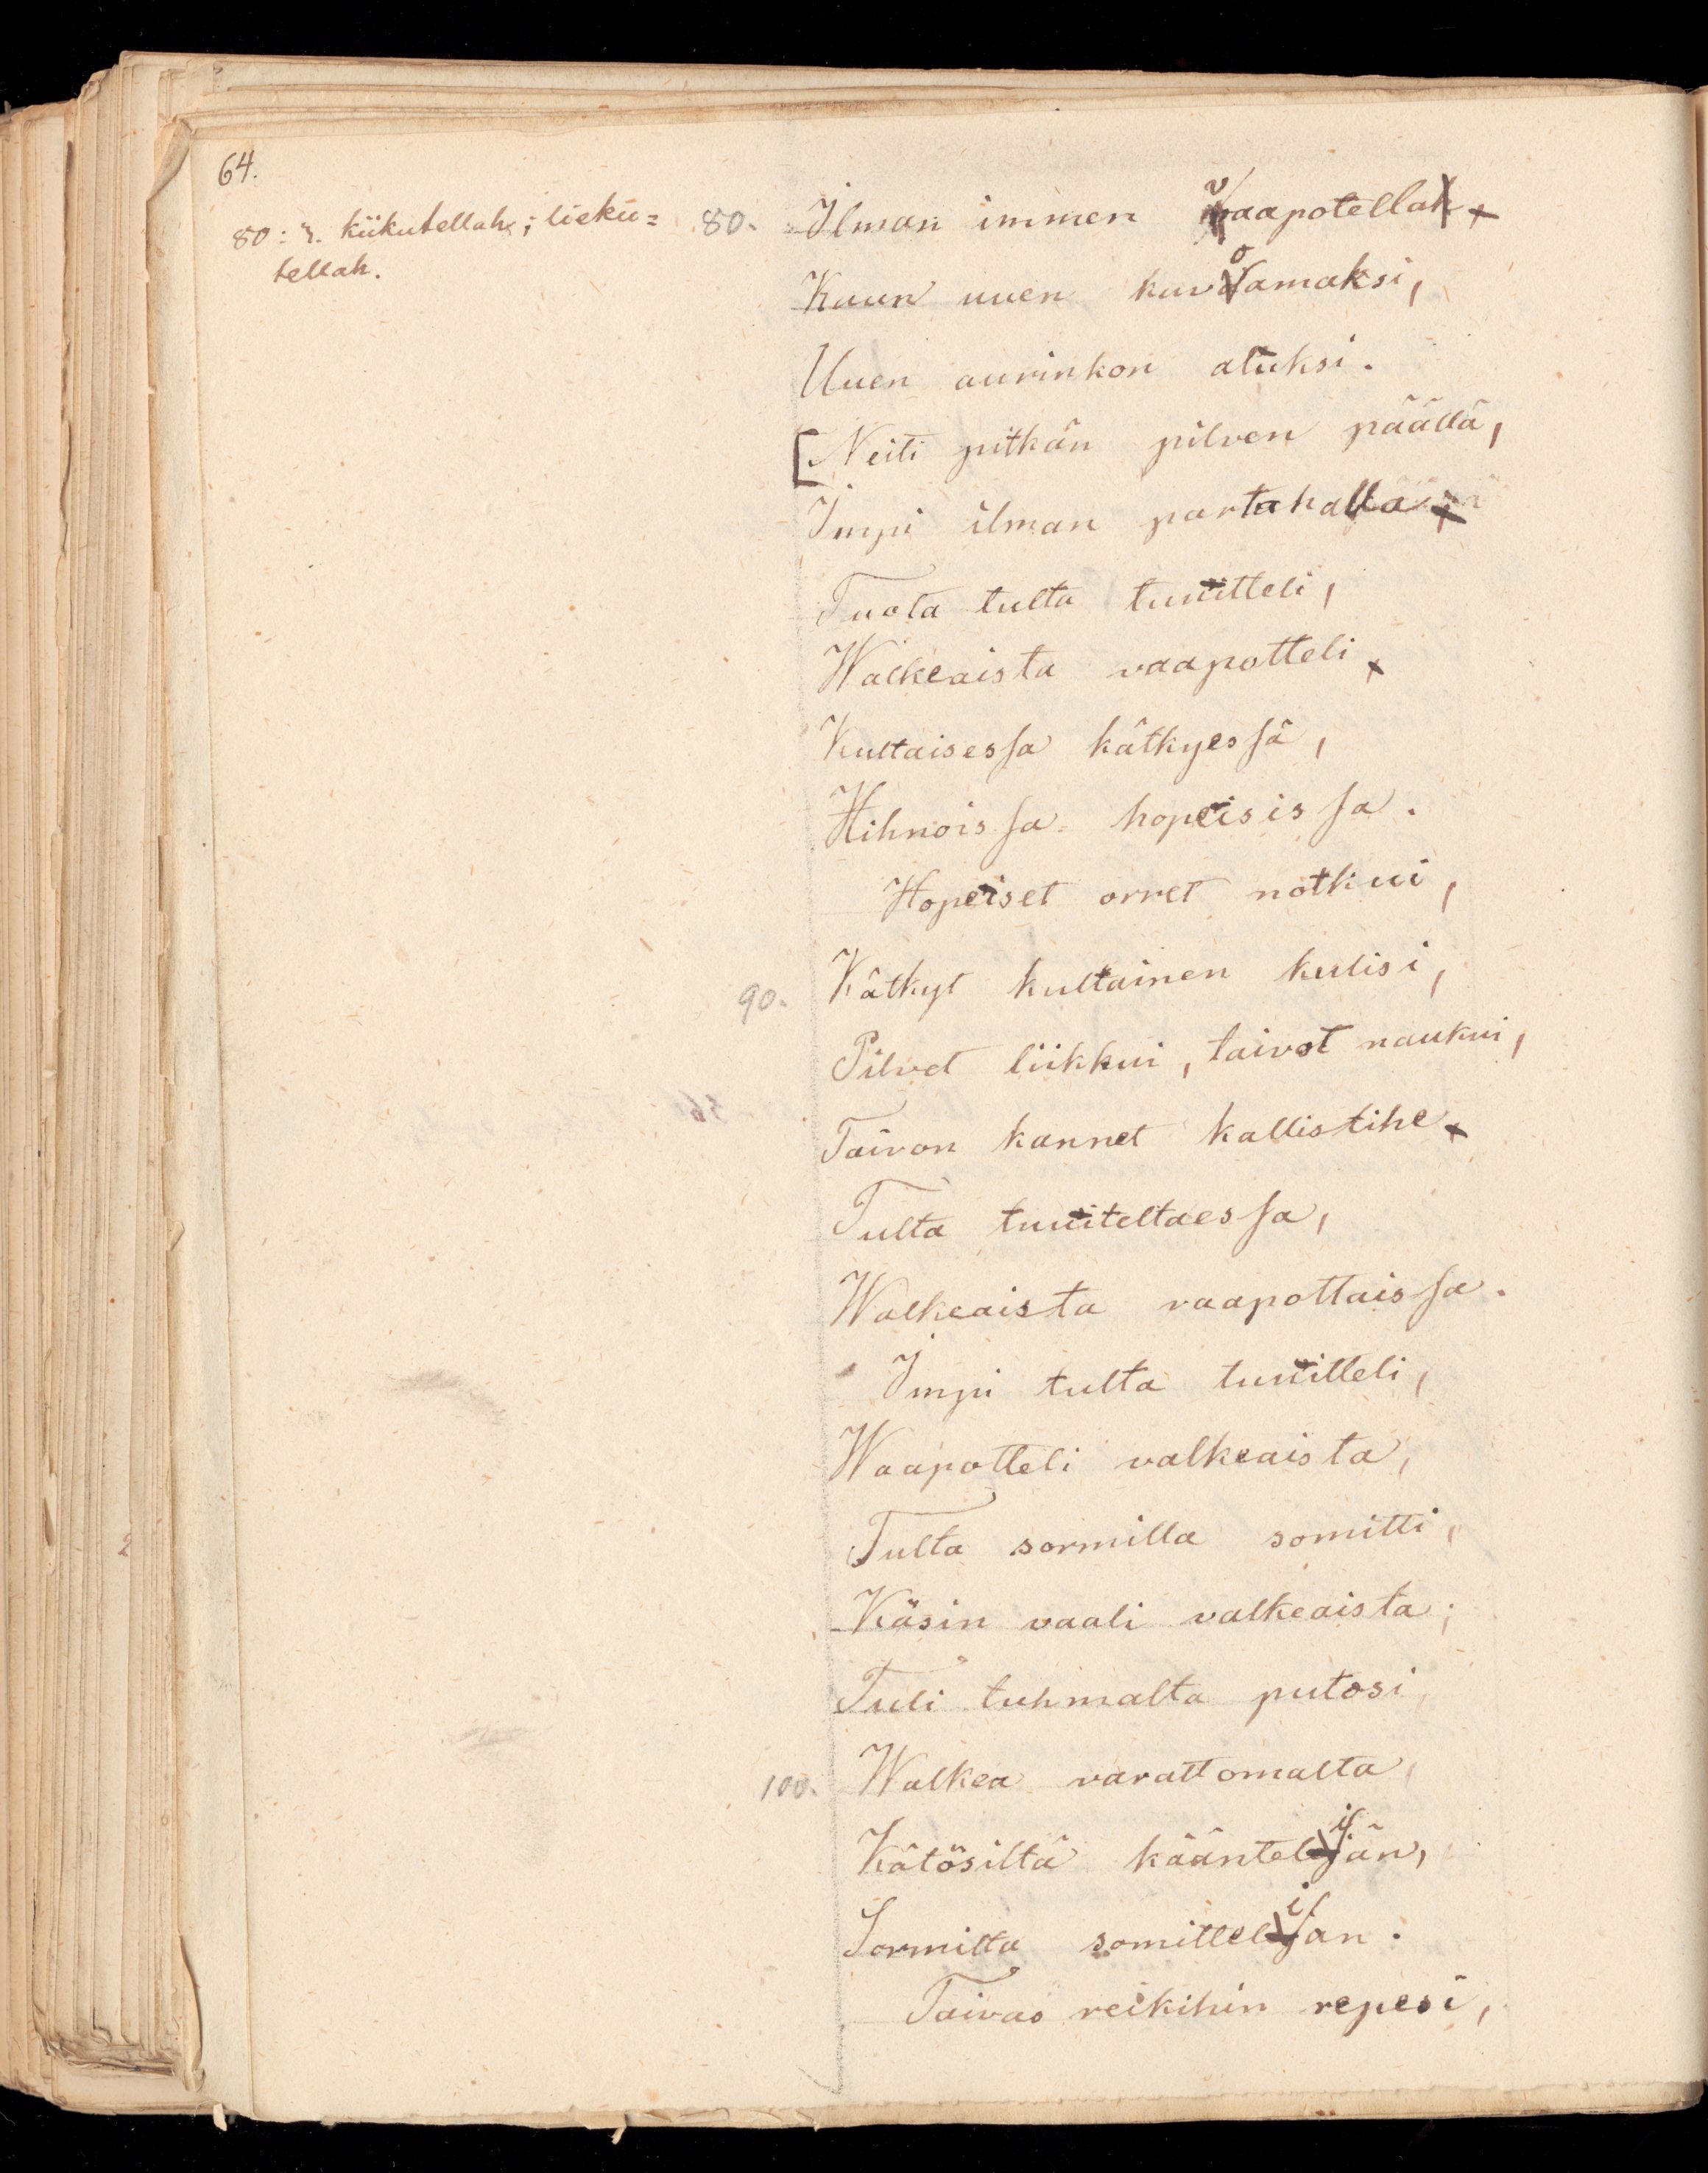 64.
80: r. kiikutellah; lieku=
tellah.
80. Ilman immen vaapotella
Kuun uuen kuvoamaksi,
Uuen aurinkon aluksi.
[Neiti pitkän pilven päällä,
Impi ilman partahalla
Tuota tulta tuuitteli,
Walkeaista vaapotteli
Kultaisessa kätkyessä,
Hihnoissa hopeisissa.
Hopeiset orret notkui,
90. Kätkyt kultainen kulisi,
Pilvet liikkui, taivot naukui,
Taivon kannet kallistihe
Tulta tuuiteltaessa,
Walkeaista vaapottaissa.
Impi tulta tuuitteli,
Waapotteli valkeaista,
Tulta sormilla somitti,
Käsin vaali valkeaista;
Tuli tuhmalta putosi,
100. Walkea varattomalta,
Kätösiltä kääntelijän,
Sormilta somittelijan.
Taivas reikihin repesi,